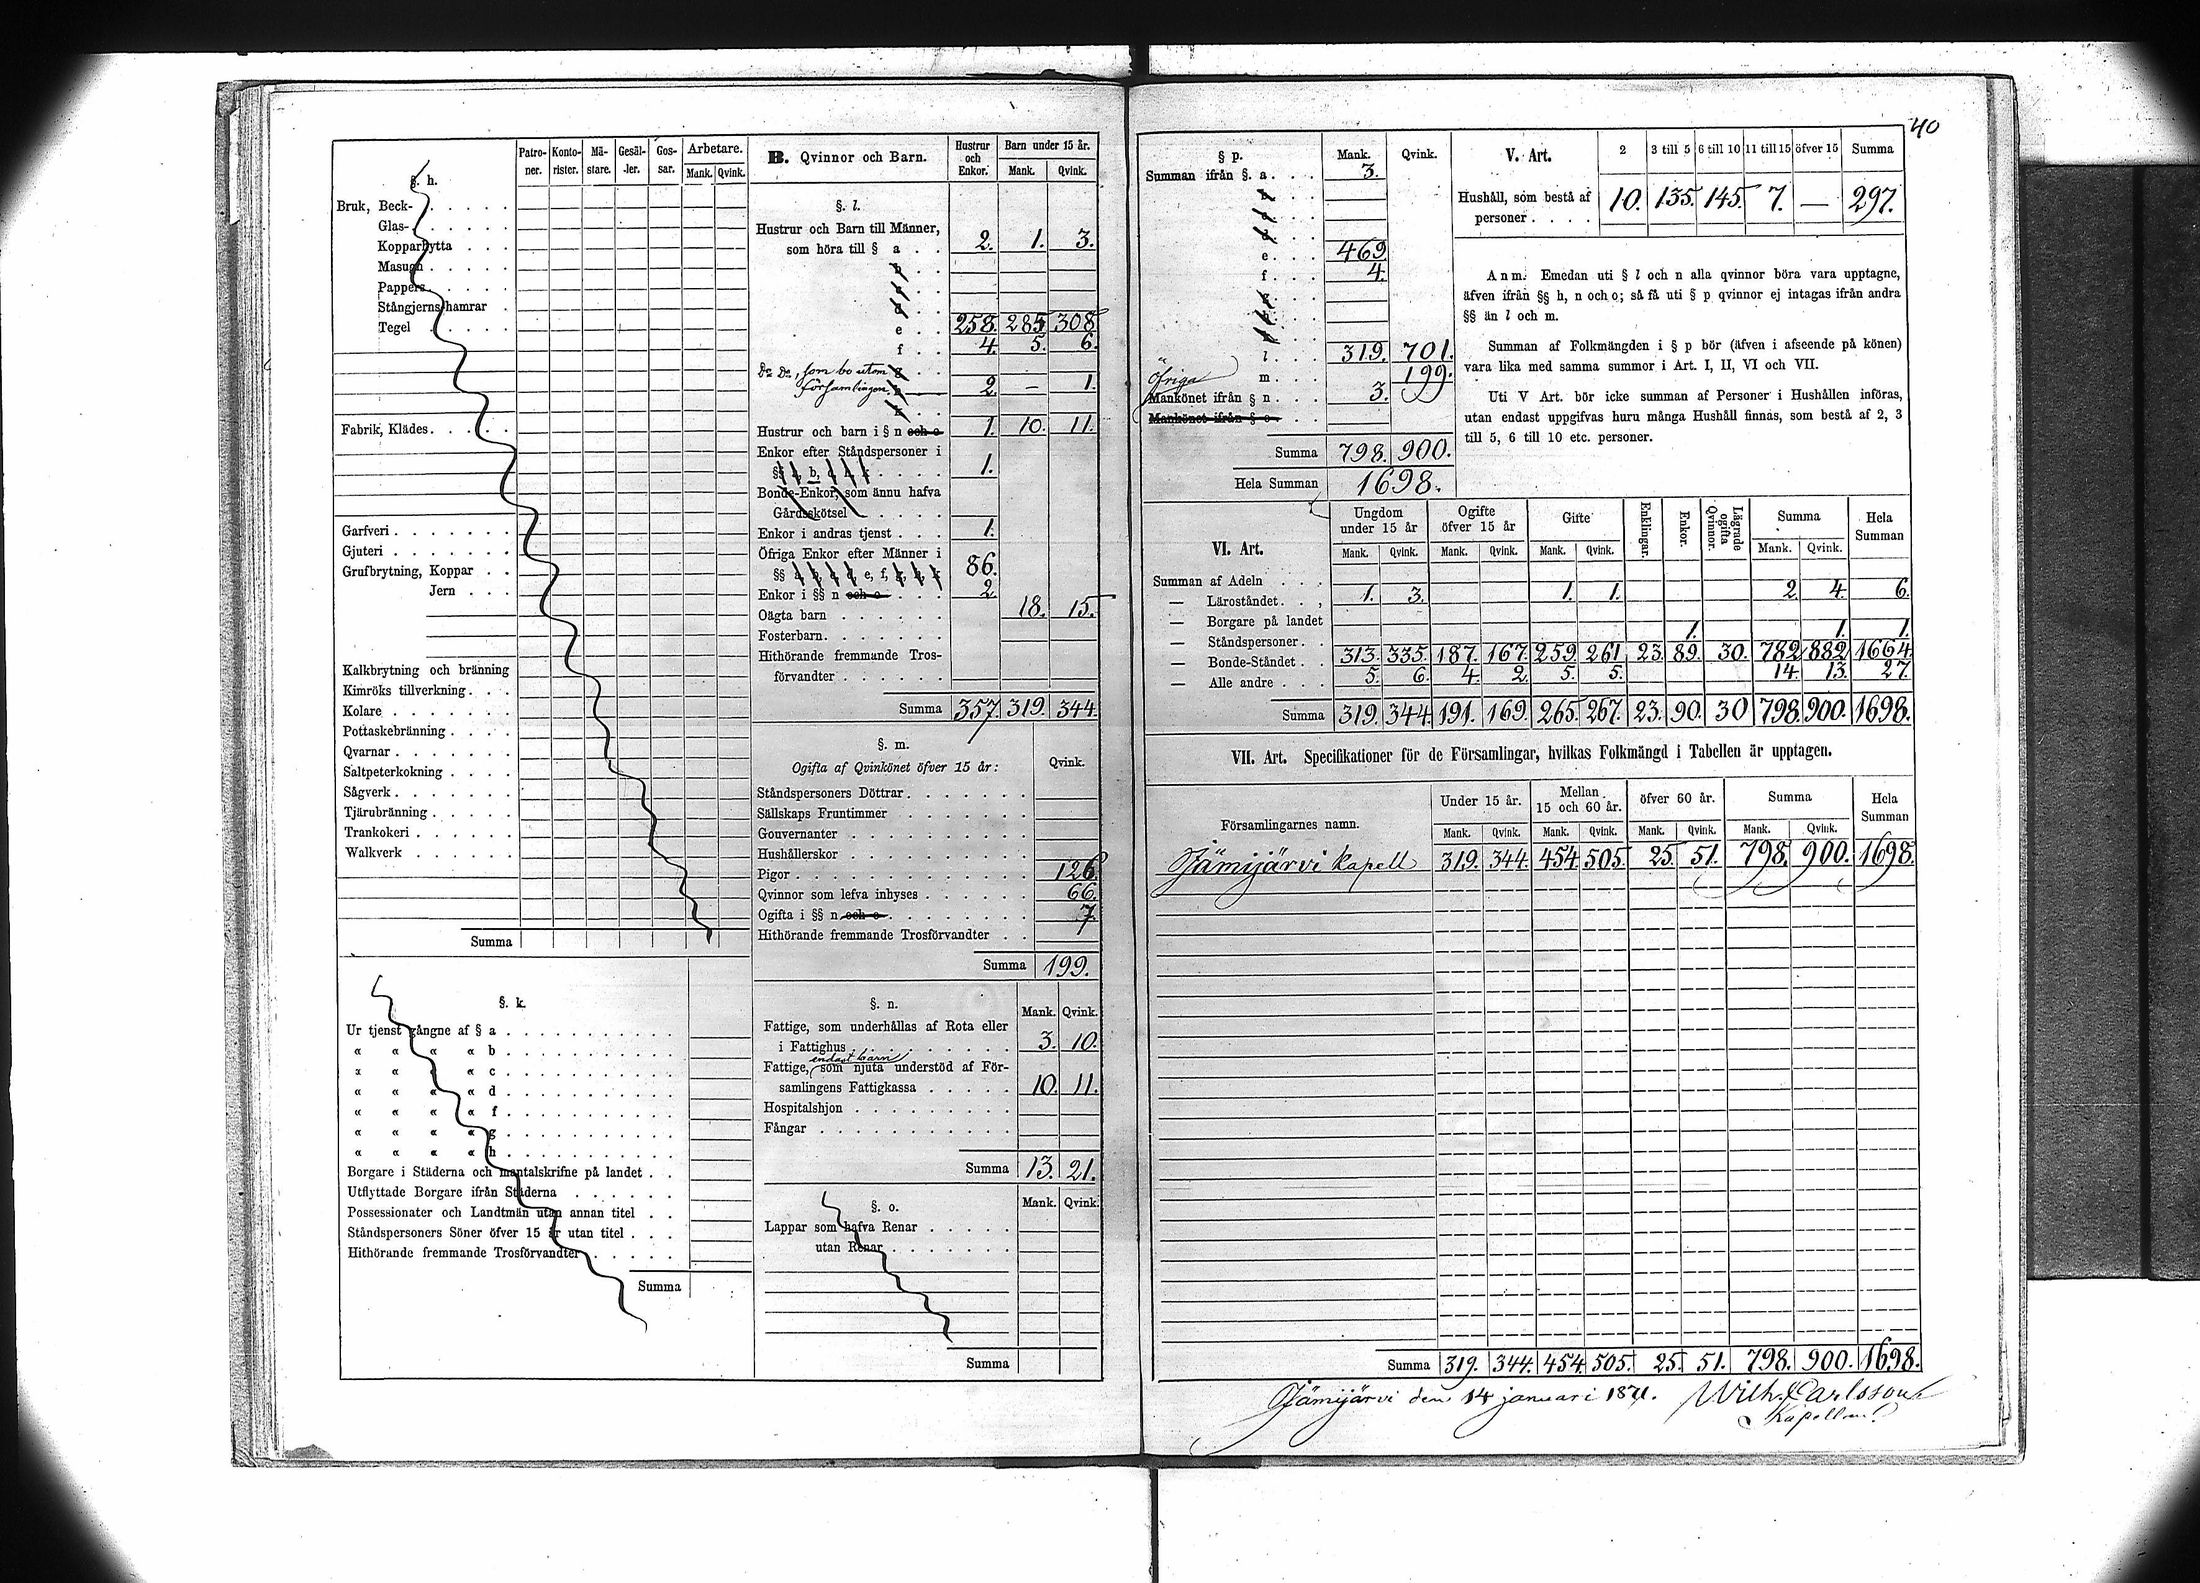 40
Patro-ner. Konto-rister. Mä-stare. Gesäl-ler. Gos-sar. Arbetare.
Mank. Qvink.
§. h.
Bruk, Beck-
Glas-
Kopparhytta
Masugn
Pappers
Stångjerns hamrar
Tegel
Fabrik, Klädes
Garfveri
Gjuteri
Grufbrytning, Koppar
Jern
Kalkbrytning och bränning
Kimröks tillverkning
Kolare
Pottaskebränning
Qvarnar
Saltpeterkokning
Sågverk
Tjärubränning
Trankokeri
Walkverk
Summa
§. k.
Ur tjenst gångne af § a
« « « « b
« « « « c
« « « « d
« « « « f
« « « « g
« « « « h
Borgare i Städerna och mantalskrifne på landet
Utflyttade Borgare ifrån Städerna
Possessionater och Landtmän utan annan titel
Ståndspersoners Söner öfver 15 år utan titel
Hithörande fremmande Trosförvandter
Summa
B. Qvinnor och Barn. Hustrur och Enkor. Barn under 15 år.
Mank. Qvink.
§. l.
Hustrur och Barn till Männer,
som höra till § a 2. 1. 3.
b
c
d
e 258. 285 308
f 4. 5. 6.
Do Do, som bo utom g
församlingen. h 2. — 1.
k
Hustrur och barn i § n och o 1. 10. 11.
Enkor efter Ståndspersoner i
§§ a, b, c, d, k 1.
Bonde-Enkor, som ännu hafva
Gårdsskötsel
Enkor i andras tjenst 1.
Öfriga Enkor efter Männer i
§§ a, b, c, d, e, f, g, h, k 86.
Enkor i §§ n och o 2
Oägta barn 18. 15.
Fosterbarn
Hithörande fremmande Tros-
förvandter
Summa 357. 319. 344.
§. m.
Ogifta af Qvinkönet öfver 15 år: Qvink.
Ståndspersoners Döttrar
Sällskaps Fruntimmer
Gouvernanter
Hushållerskor
Pigor 126.
Qvinnor som lefva inhyses 66.
Ogifta i §§ n och o 7.
Hithörande fremmande Trosförvandter
Summa 199.
§. n.
Mank. Qvink.
Fattige, som underhållas af Rota eller
i Fattighus 3. 10.
endast barn
Fattige, som njuta understöd af För-
samlingens Fattigkassa 10. 11.
Hospitalshjon
Fångar
Summa 13. 21.
§. o. Mank. Qvink.
Lappar som hafva Renar
utan Renar
Summa
§ p. Mank. Qvink.
Summan ifrån §. a 3.
b
c
d
e. 469
f. 4.
g
h
k
l. 319. 701.
m. 199.
Öfriga
Mankönet ifrån § n. 3.
Mankönet ifrån § o
Summa 798. 900.
Hela Summan 1698.
V. Art. 2 3 till 5 6 till 10 11 till 15 öfver 15 Summa
Hushåll, som bestå af
personer 10. 135. 145. 7. — 297.
Anm: Emedan uti § l och n alla qvinnor böra vara upptagne,
äfven ifrån §§ h, n och o; så få uti § p qvinnor ej intagas ifrån andra
§§ än l och m.
Summan af Folkmängden i § p bör (äfven i afseende på könen)
vara lika med samma summor i Art. I, II, VI och VII.
Uti V Art. bör icke summan af Personer i Hushållen införas,
utan endast uppgifvas huru många Hushåll finnas, som bestå af 2, 3
till 5, 6 till 10 etc. personer.
VI. Art. Ungdom under 15 år Ogifte öfver 15 år Gifte Enklingar. Enkor. Lägrade ogifta Qvinnor. Summa Hela Summan
Mank. Qvink. Mank. Qvink. Mank. Qvink. Mank. Qvink.
Summan af Adeln
— Läroståndet 1. 3. 1. 1. 2. 4. 6.
— Borgare på landet
— Ståndspersoner 1. 1. 1.
— Bonde-Ståndet 313. 335. 187. 167. 259. 261. 23. 89. 30. 782 882 1664
— Alle andre 5. 6. 4. 2. 5. 5. 14. 13. 27.
Summa 319. 344. 191. 169. 265. 267. 23. 90. 30 798. 900. 1698.
VII. Art. Specifikationer för de Församlingar, hvilkas Folkmängd i Tabellen är upptagen.
Församlingarnes namn. Under 15 år. Mellan 15 och 60 år. öfver 60 år. Summa Hela Summan
Mank. Qvink. Mank. Qvink. Mank. Qvink. Mank. Qvink.
Jämijärvi kapell 319. 344. 454. 505. 25. 51. 798. 900. 1698.
Summa 319. 344. 454 505. 25. 51. 798. 900. 1698.
Jämijärvi den 14 januari 1871. Wilh. Carlsson
Kapellan.